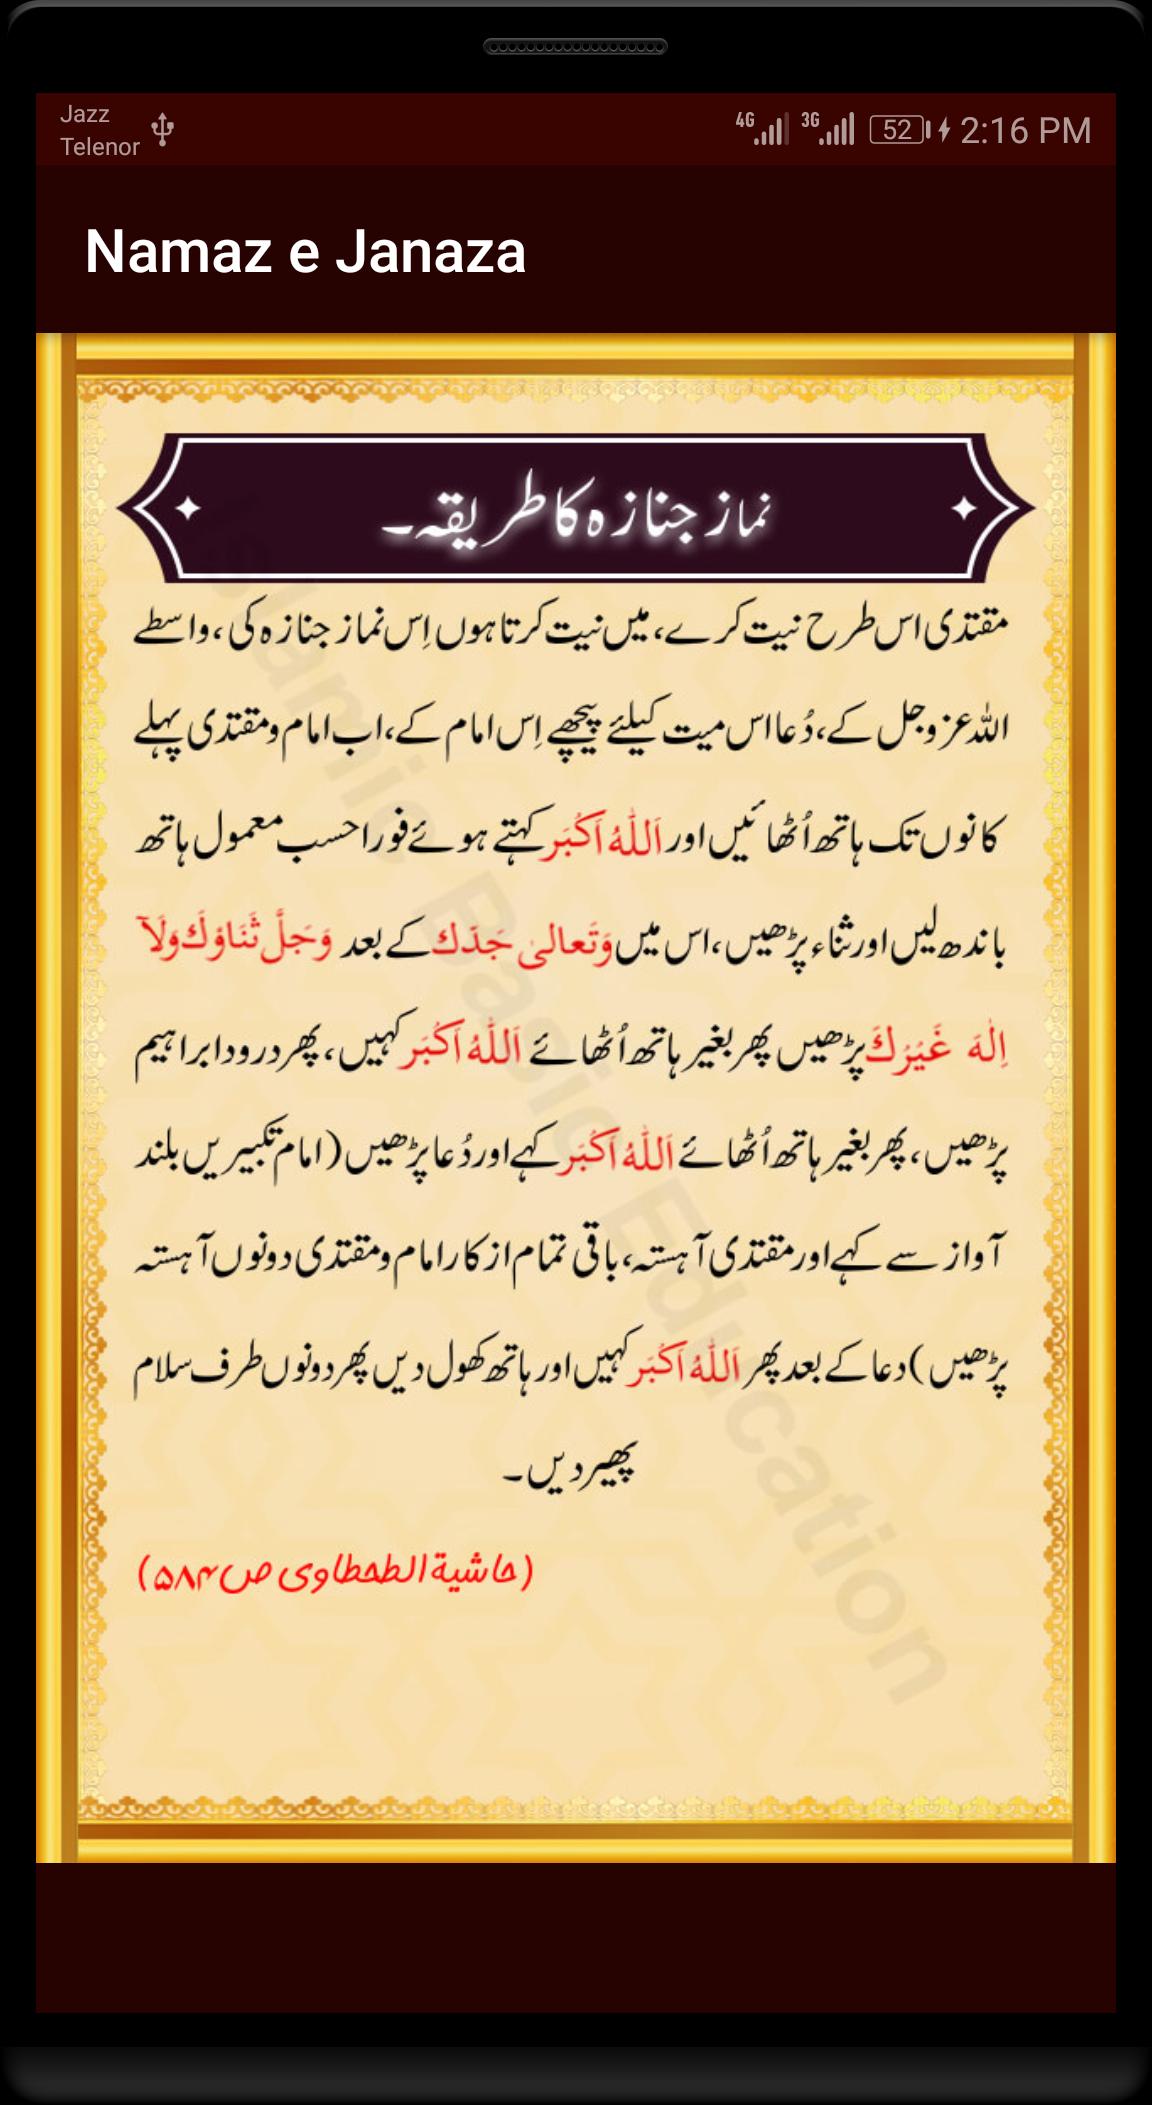 Jazz
Telenor
4G 3G 52 2:16 PM
Namaz e Janaza
نماز جنازہ کا طریقہ۔
مقتدی اس طرح نیت کرے، میں نیت کرتا ہوں اِس نماز جنازہ کی، واسطے
اللہ عزوجل کے، دُعا اس میت کیلئے پیچھے اِس امام کے، اب امام و مقتدی پہلے
کانوں تک ہاتھ اُٹھائیں اور اَللّٰهُ اَكْبَر کہتے ہوئے فورا حسب معمول ہاتھ
باندھ لیں اور ثناء پڑھیں، اس میں وَتَعالیٰ جَدّك کے بعد وَجَلَّ ثَنَاؤكَ وَلَآ
اِلٰهَ غَيْرُكَ پڑھیں پھر بغیر ہاتھ اُٹھائے اَللّٰهُ اَكْبَر کہیں، پھر درود ابراہیم
پڑھیں، پھر بغیر ہاتھ اُٹھائے اَللّٰهُ اَكْبَر کہے اور دُعا پڑھیں (امام تکبیریں بلند
آواز سے کہے اور مقتدی آہستہ، باقی تمام ازکار امام و مقتدی دونوں آہستہ
پڑھیں) دعا کے بعد پھر اَللّٰهُ اَكْبَر کہیں اور ہاتھ کھول دیں پھر دونوں طرف سلام
پھیر دیں۔
(حاشیة الطحطاوی ص ۵۸۴)
Islamic Basic Education